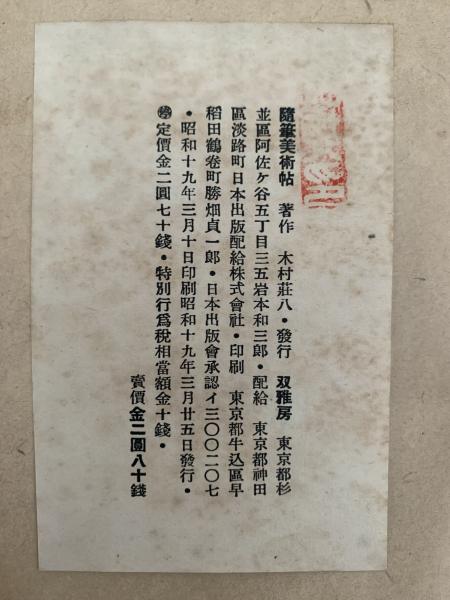 隨筆美術帖　著作　木村莊八・發行　双雅房　東京都杉
並區阿佐ケ谷五丁目三五岩本和三郎・配給　東京都神田
區淡路町日本出版配給株式會社・印刷　東京都牛込區早
稻田鶴卷町勝畑貞一郎・日本出版會承認イ三〇〇二〇七
・昭和十九年三月十日印刷昭和十九年三月廿五日發行・
㊕定價金二圓七十錢・特別行爲稅相當額金十錢・
賣價金二圓八十錢